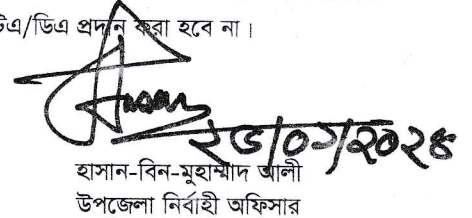 টিএ/ডিএ প্রদান করা হবে না।
হাসান-বিন-মুহাম্মাদ আলী
উপজেলা নির্বাহী অফিসার